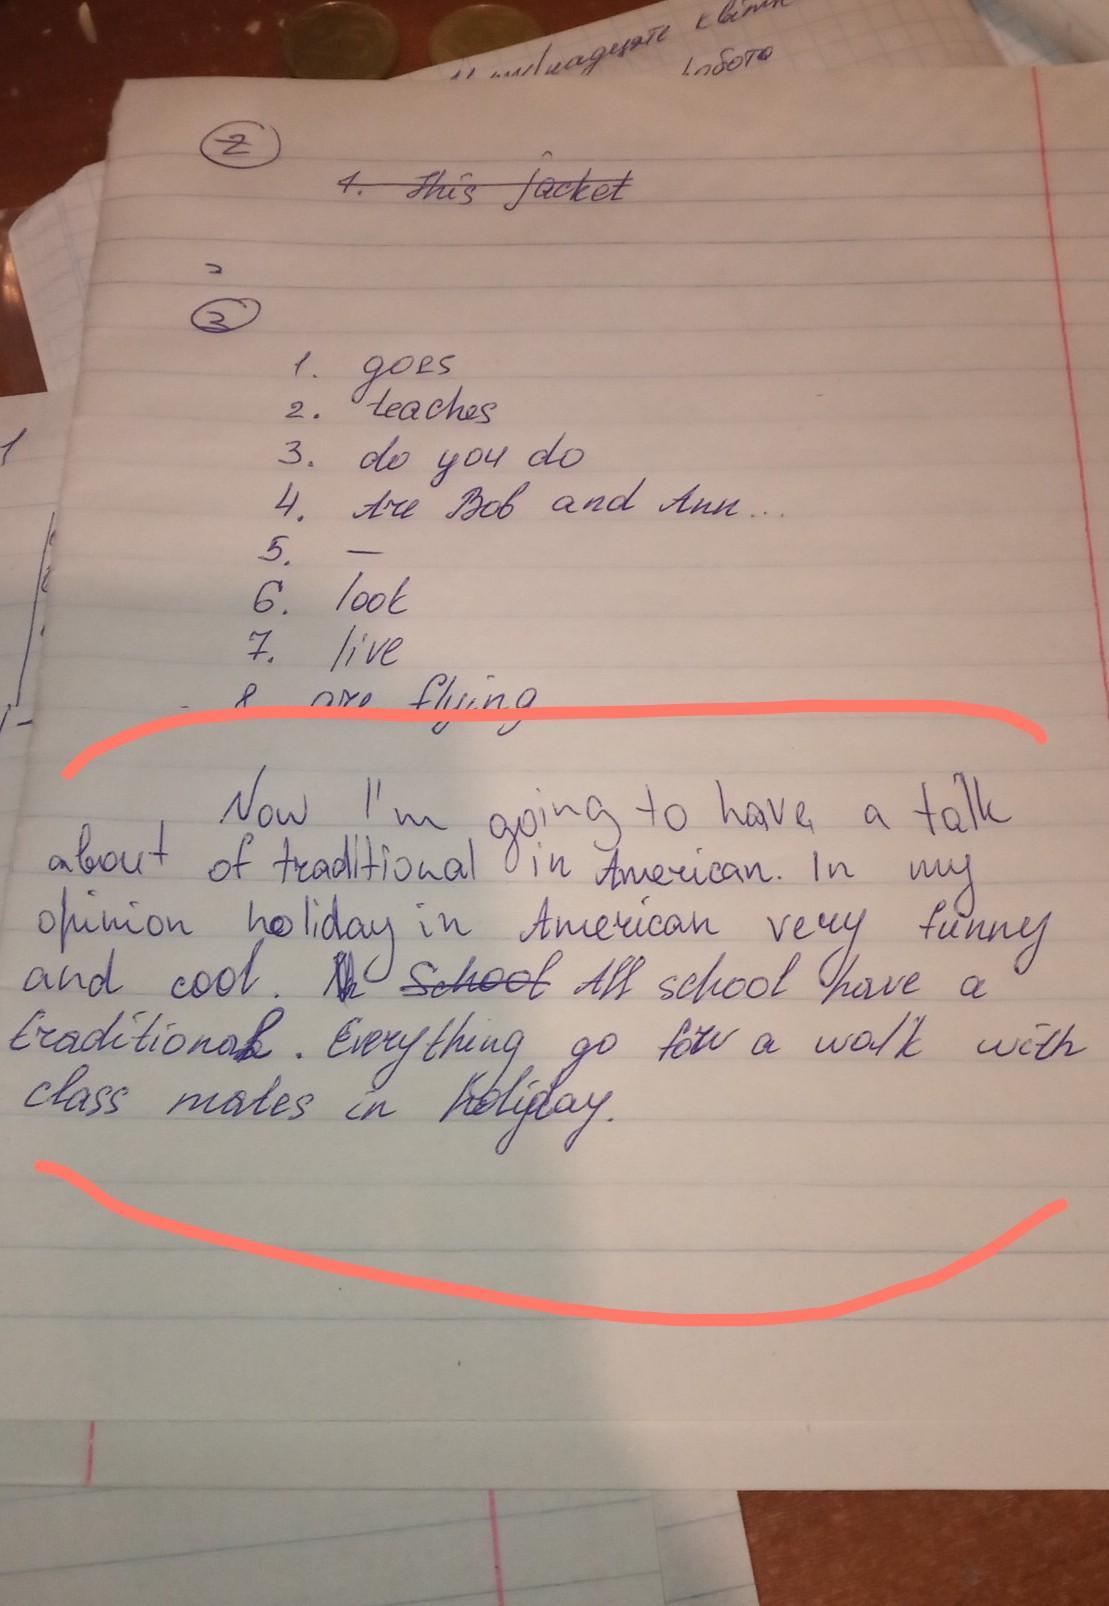 роботА
2
1. This jacket
3
1. goes
2. teaches
3. do you do
4. Are Bob and Ann...
5. —
6. look
7. live
8. are flying
Now I'm going to have a talk
about of traditional in American. In my
opinion holiday in American very funny
and cool. School All school have a
traditional. Everything go for a walk with
class mates in holiday.